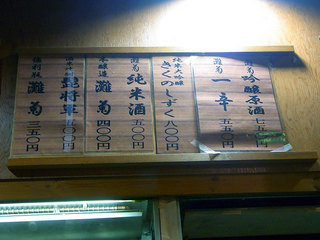 灘菊吟醸原酒 七五〇円
灘菊 一辛 五五〇円
純米大吟醸 きくのしずく 八〇〇円
灘菊 純米酒 五〇〇円
本醸造 灘菊 四〇〇円
将軍 五〇〇円
徳利瓶 灘菊 三五〇円